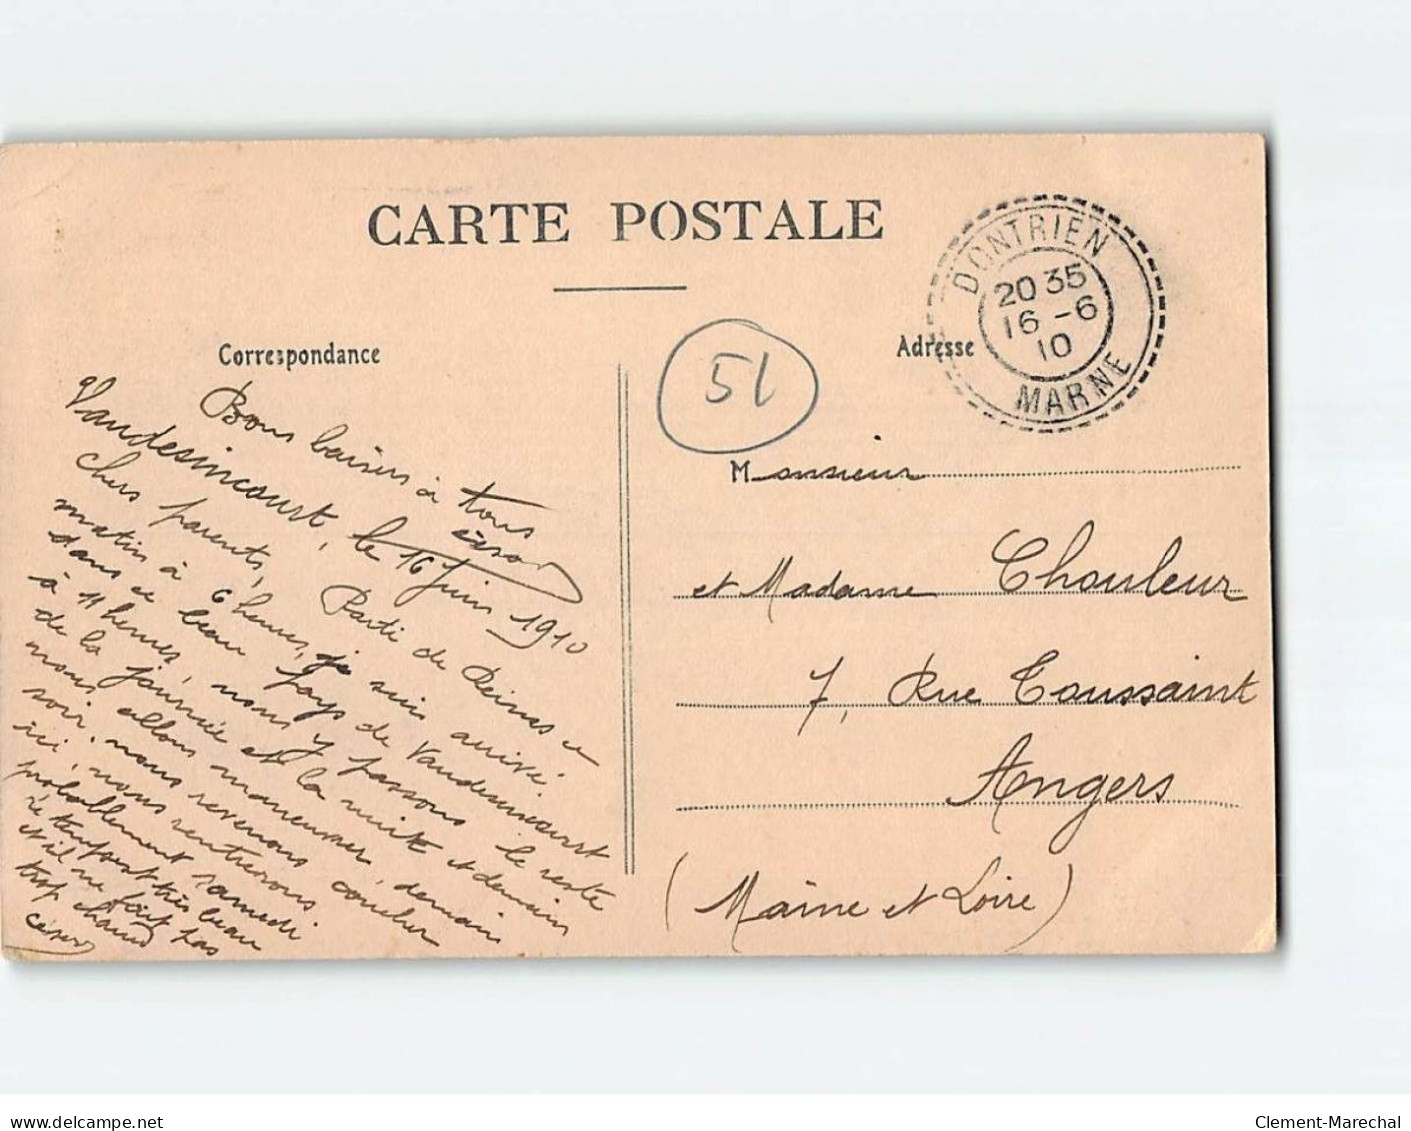 CARTE POSTALE
DONTRIEN
20 35
16 - 6
10
MARNE
Correspondance
Adresse
51
Bons baisers à tous
César
Vaudesincourt, le 16 Juin 1910
Chers parents, Parti de Reims ce
matin à 6 heures, je suis arrivé
dans ce beau pays de Vaudesincourt
à 11 heures, nous y passons le reste
de la journée et la nuit et demain
nous allons manœuvrer, demain
soir, nous revenons coucher
ici, nous rentrerons
probablement samedi
le temps est très beau
et il ne fait pas
trop chaud
César
Monsieur
et Madame Chouleur
7, Rue Toussaint
Angers
(Maine et Loire)
delcampe.net
Clement-Marechal